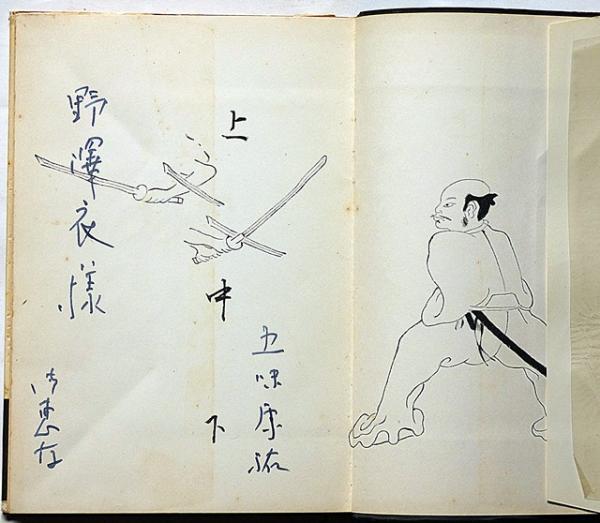 上
中
下
五味康祐
野澤衣様
御恵存